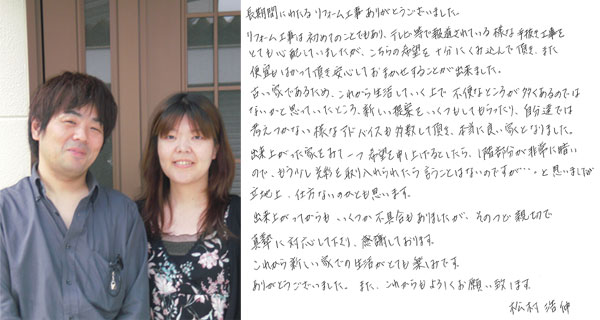 長期間にわたるリフォーム工事ありがとうございました。
リフォーム工事は初めてのことでもあり、テレビ等で報道されている様な手抜き工事を
とても心配していましたが、こちらの希望を十分にくみ込んで頂き、また
便宜もはかって頂き安心しておまかせすることが出来ました。
古い家であるため、これから生活していく上で不便なところが多くあるのでは
ないかと思っていたところ、新しい提案をいくつもしてもらったり、自分達では
考えつかない様なアドバイスも多数して頂き、本当に良い家となりました。
出来上がった家をみて一つ希望を申し上げるとしたら、1階部分が非常に暗い
ので、もう少し光を取り入れられたら言うことはないのですが・・・と思いましたが
立地上、仕方ないのかとも思います。
出来上がってからもいくつか不具合もありましたが、そのつど親切で
真摯に対応して下さり、感謝しております。
これから新しい家での生活がとても楽しみです。
ありがとうございました。また、これからもよろしくお願い致します。
松村 浩伸